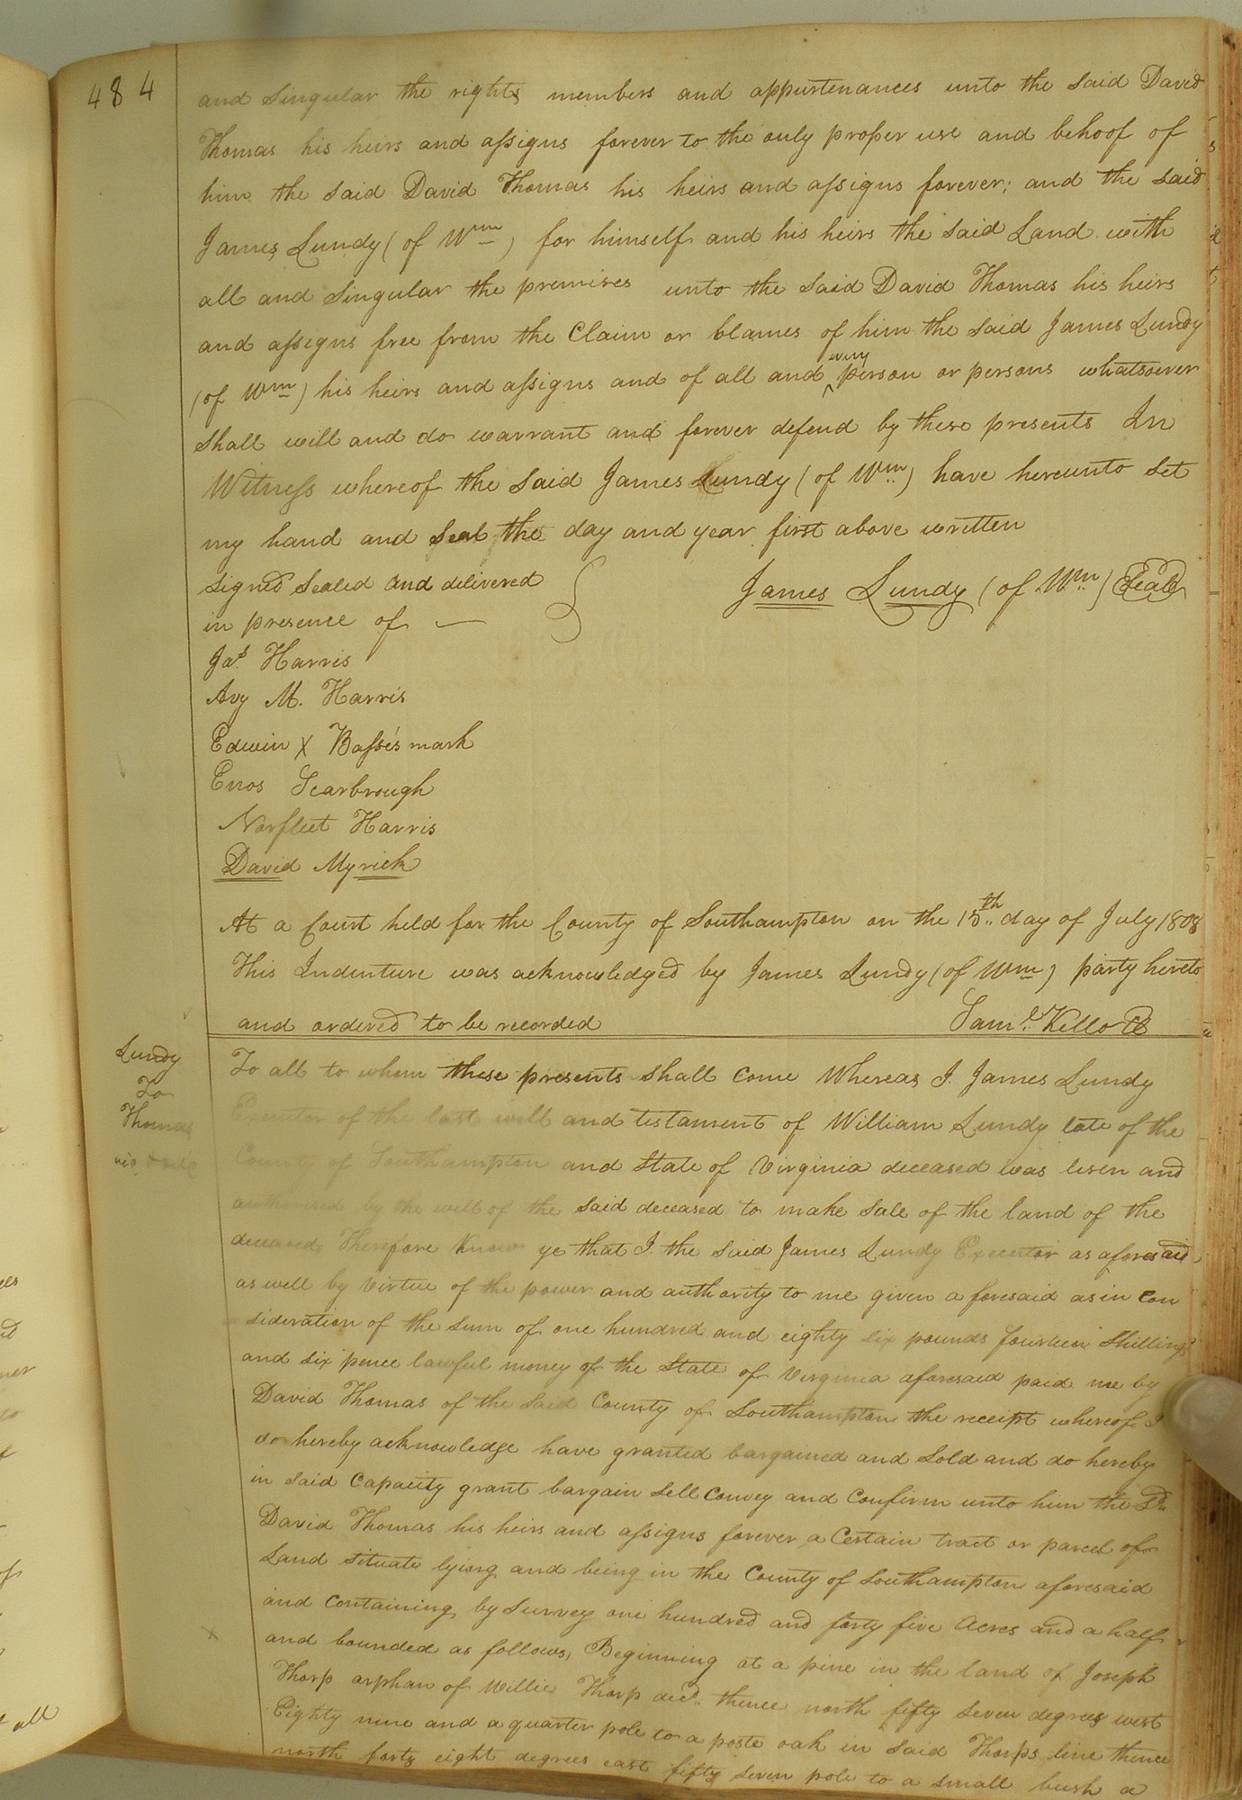 484
and singular the rights members and appurtenances unto the said David
Thomas his heirs and assigns forever to the only proper use and behoof of
him the said David Thomas his heirs and assigns forever; and the said
James Lundy (of Wm) for himself and his heirs the said Land with
all and singular the premises unto the said David Thomas his heirs
and assigns free from the Claim or blames of him the said James Lundy
(of Wm) his heirs and assigns and of all and every person or persons whatsoever
shall will and do warrant and forever defend by these presents In
Witness whereof the said James Lundy (of Wm) have hereunto set
my hand and seal the day and year first above written
signed sealed and delivered
in presence of
James Lundy (of Wm) Seal
Jas Harris
Avy M. Harris
Edwin X Basses mark
Enos Scarbrough
Norfleet Harris
David Myrick
At a Court held for the County of Southampton on the 15th day of July 1808
This Indenture was acknowledged by James Lundy (of Wm) party hereto
and ordered to be recorded
Saml Kello
Lundy
To
Thomas
To all to whom these presents shall come Whereas I James Lundy
Executor of the last will and testament of William Lundy late of the
County of Southampton and State of Virginia deceased was and
authorised by the will of the said deceased to make sale of the land of the
deceased, Therefore Know ye that I the said James Lundy Executor as aforesaid
as well by virtue of the power and authority to me given aforesaid as in con
sideration of the sum of one hundred and eighty six pounds fourteen shillings
and six pence lawful money of the State of Virginia aforesaid paid me by
David Thomas of the said County of Southampton the receipt whereof I
do hereby acknowledge have granted bargained and sold and do hereby
in said Capacity grant bargain sell convey and confirm unto him the sd
David Thomas his heirs and assigns forever a Certain tract or parcel of
Land situate lying and being in the County of Southampton aforesaid
and Containing by Survey one hundred and forty five Acres and a half
and bounded as follows, Beginning at a pine in the land of Joseph
Thorp orphan of Willie Thorp decd thence north fifty seven degrees west
Eighty nine and a quarter pole to a poste oak in said Thorps line thence
north forty eight degrees east fifty seven pole to a small bush a